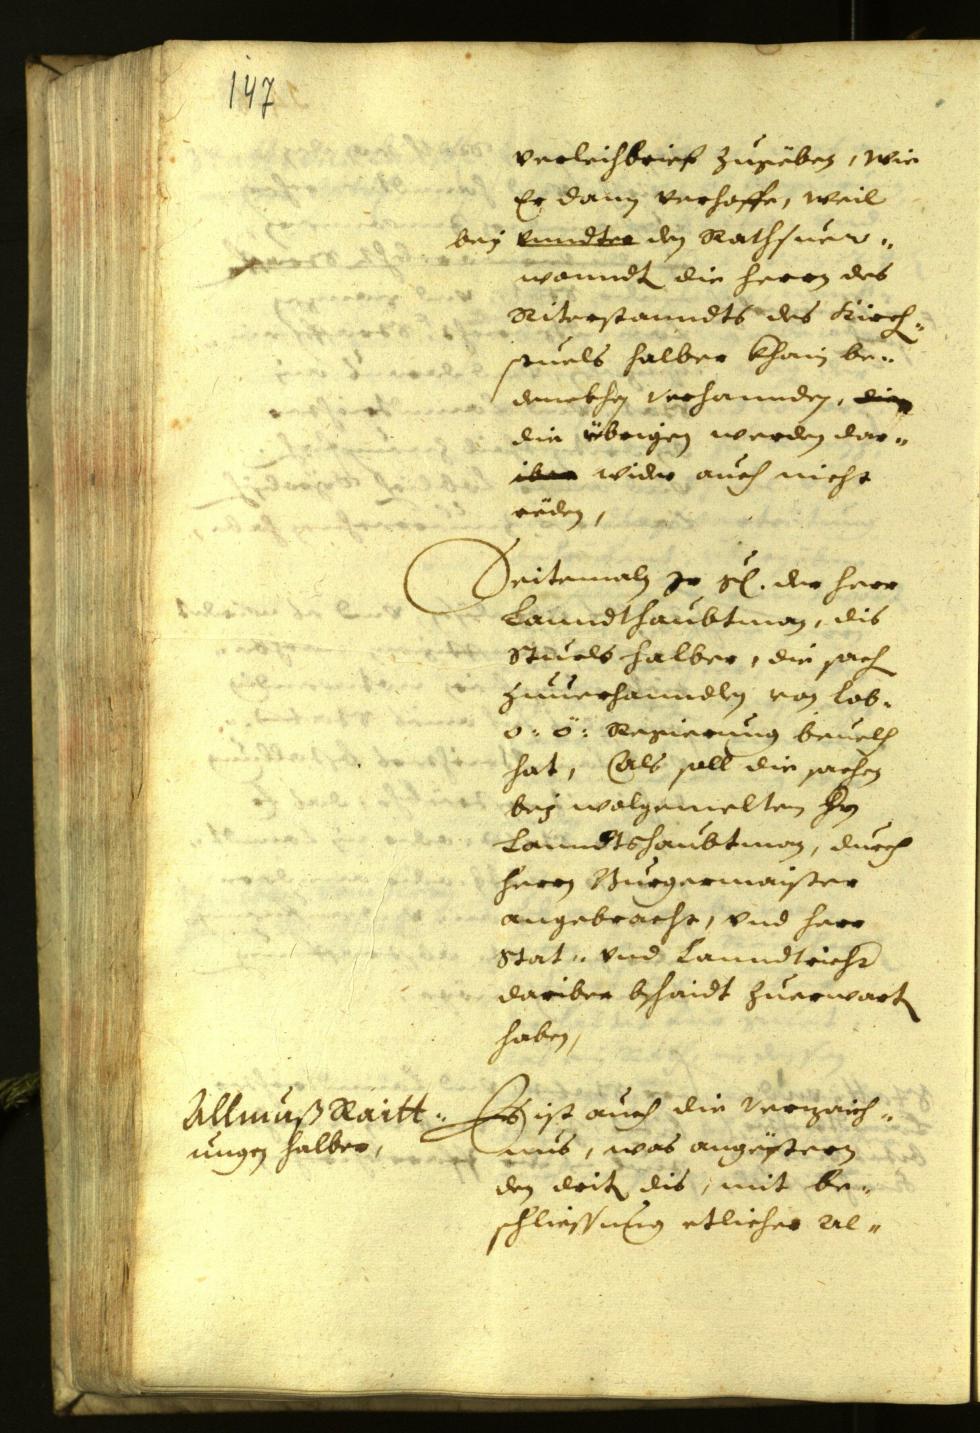 147
verleichbrief zugeben, wie
Er dann verhoffe, weil
bey vnndter den Rathsuer„
wanndt die herrn des
Riterstanndts des Kirch„
stuels halber khain be„
denckhen verhannden, die
die übrigen werden dar„
iber wider auch nicht
reden,
Seitemaln Ir Gl. der herr
Lanndthaubtman, dis
Stuels halber, die sach
zuuerhanndlen von Lob.
o: ö: Regierung beuelch
hat, Als soll die sachen
bey wolgemelten Hn
Lanndtshaubtman, durch
herrn Burgermaister
angebracht, vnd herr
Stat„ vnd Lanndtricht
dariber bschaidt zuerwart
haben,
Allmueß Raitt„
ungen halber,
Es ist auch die Verzaich„
nus, was angestern
den drit dis, mit be„
schliessung etlicher Al„